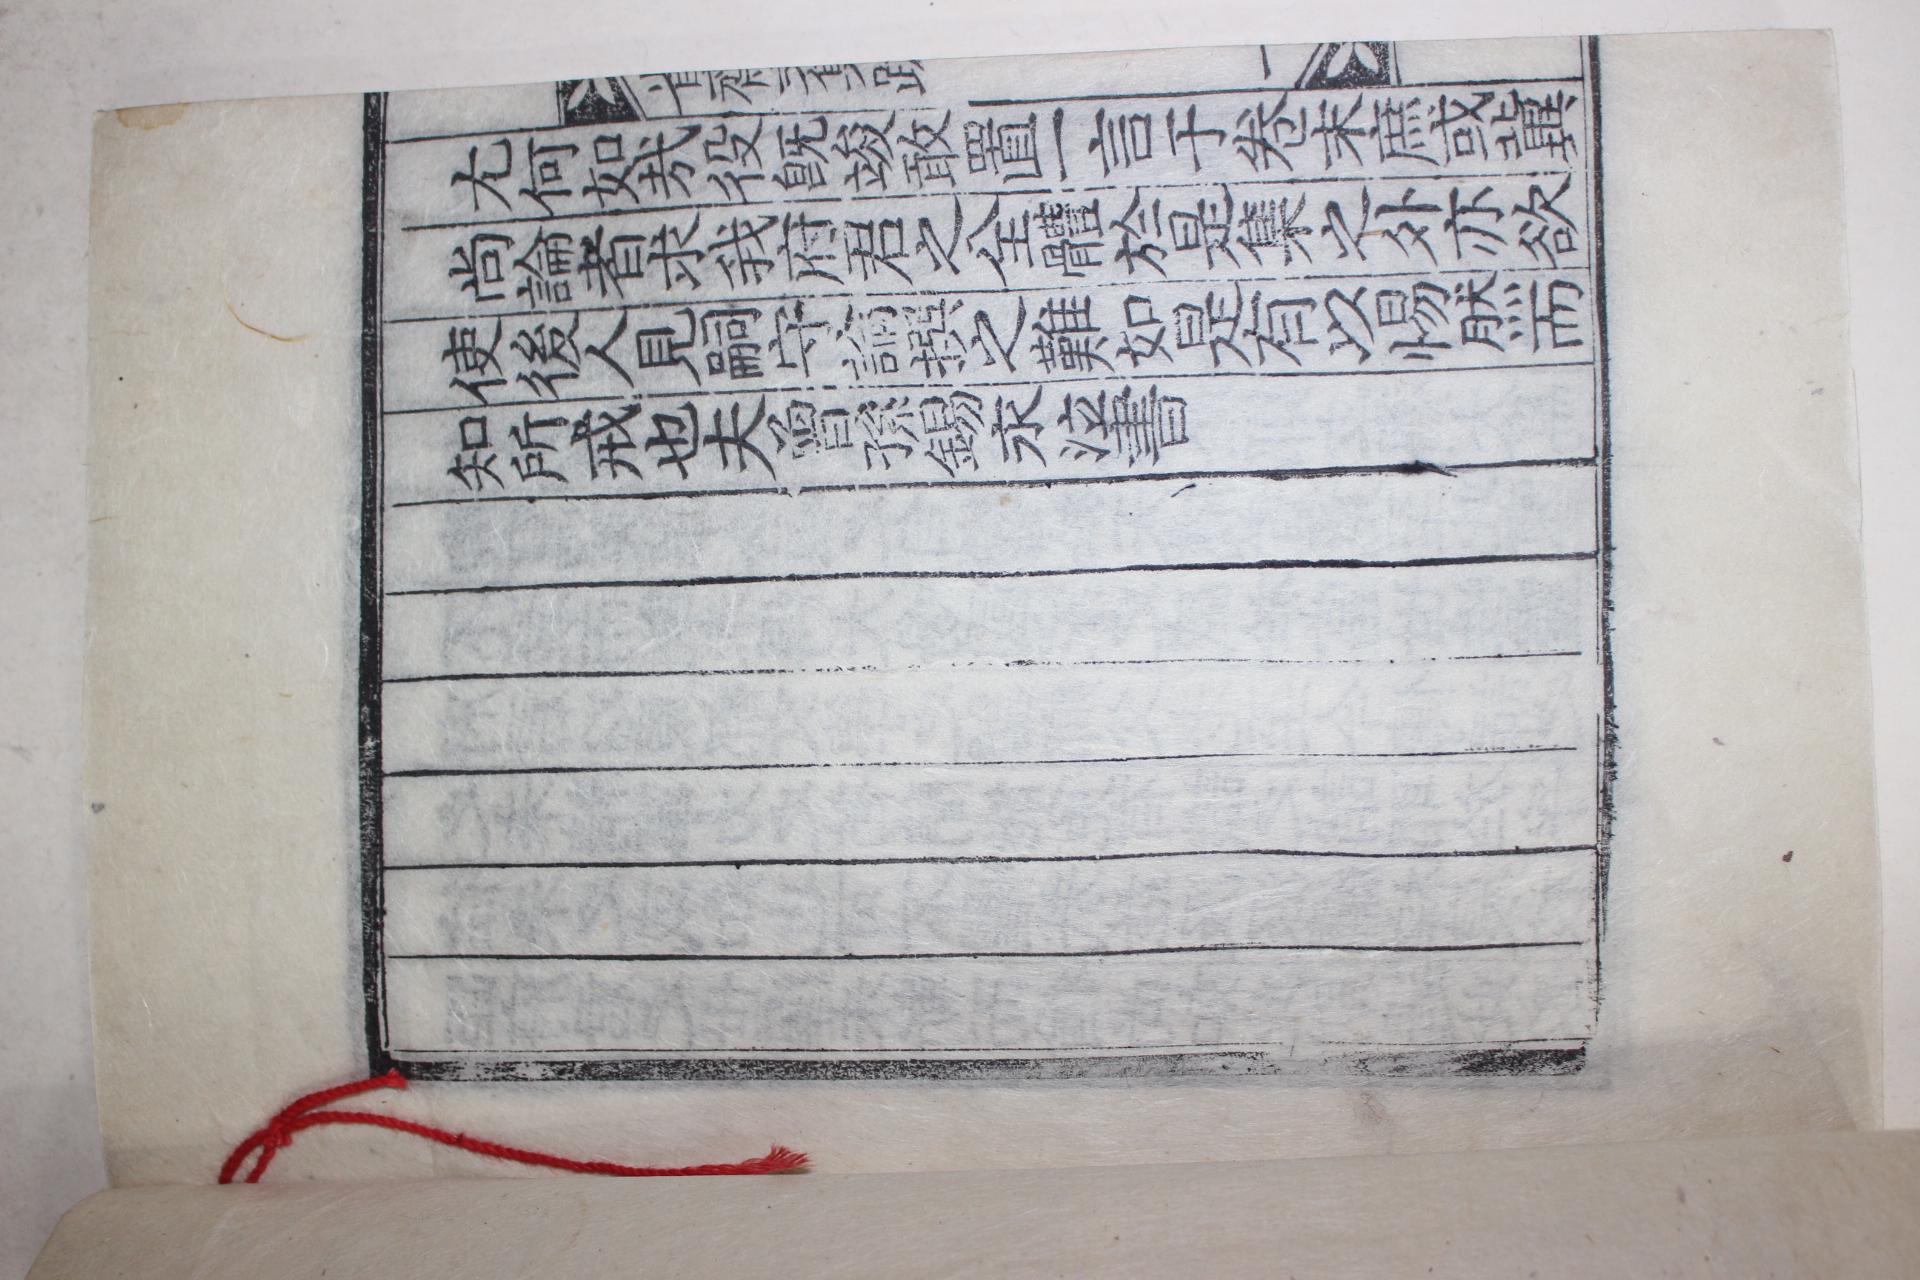 尤何如哉役旣竣敢置一言于卷末庶或
尚論者求我府君之全體於是集之外亦欲
使後人見嗣守論撰之難如是有以惕然而
知所戒也夫曾孫錫永泣書